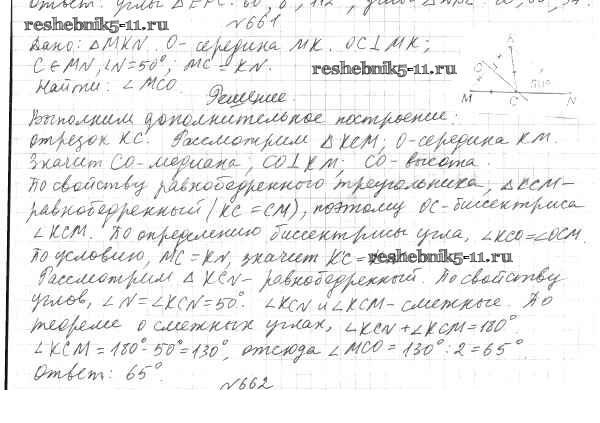 Ответ: углы
№661
reshebnik5-11.ru
Дано: △MKN. O- середина MK. OC⊥MK;
C∈MN, ∠N=50°; MC=KN.
reshebnik5-11.ru
Найти: ∠MCO.
Решение.
K
O
50°
M C N
Выполним дополнительное построение:
отрезок KC. Рассмотрим △KCM; O-середина KM.
Значит CO-медиана; CO⊥KM; CO-высота.
По свойству равнобедренного треугольника, △KCM-
равнобедренный (KC=CM), поэтому OC-биссектриса
∠KCM. По определению биссектрисы угла, ∠KCO=∠OCM.
По условию, MC=KN, значит KC=
reshebnik5-11.ru
Рассмотрим △KCN- равнобедренный. По свойству
углов, ∠N=∠KCN=50°. ∠KCN и ∠KCM- смежные. По
теореме о смежных углах, ∠KCN+∠KCM=180°
∠KCM=180°-50°=130°, отсюда ∠MCO=130°:2=65°
Ответ: 65°.
№662